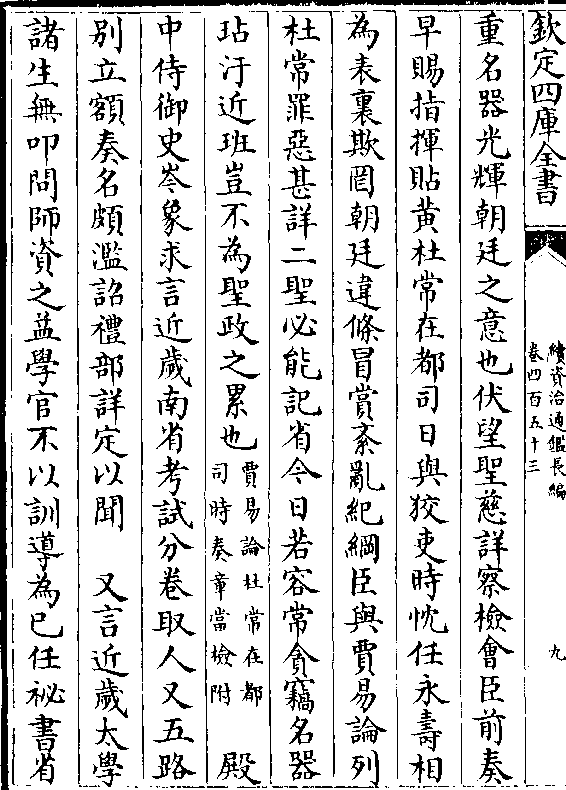 欽定四庫全書
續資治通鑑長編
卷四百五十三
九
重名器光輝朝廷之意也伏望聖慈詳察檢會臣前奏
早賜指揮貼黃杜常在都司日與狡吏時忱任永壽相
為表裏欺罔朝廷違條冒賞紊亂紀綱臣與賈易論列
杜常罪惡甚詳二聖必能記省今日若容常貪竊名器
玷汙近班豈不為聖政之累也賈易論杜常在都
司時奏章當檢附
殿
中侍御史岑象求言近歲南省考試分卷取人又五路
別立額奏名頗濫詔禮部詳定以聞　又言近歲太學
諸生無叩問師資之益學官不以訓導為已任祕書省